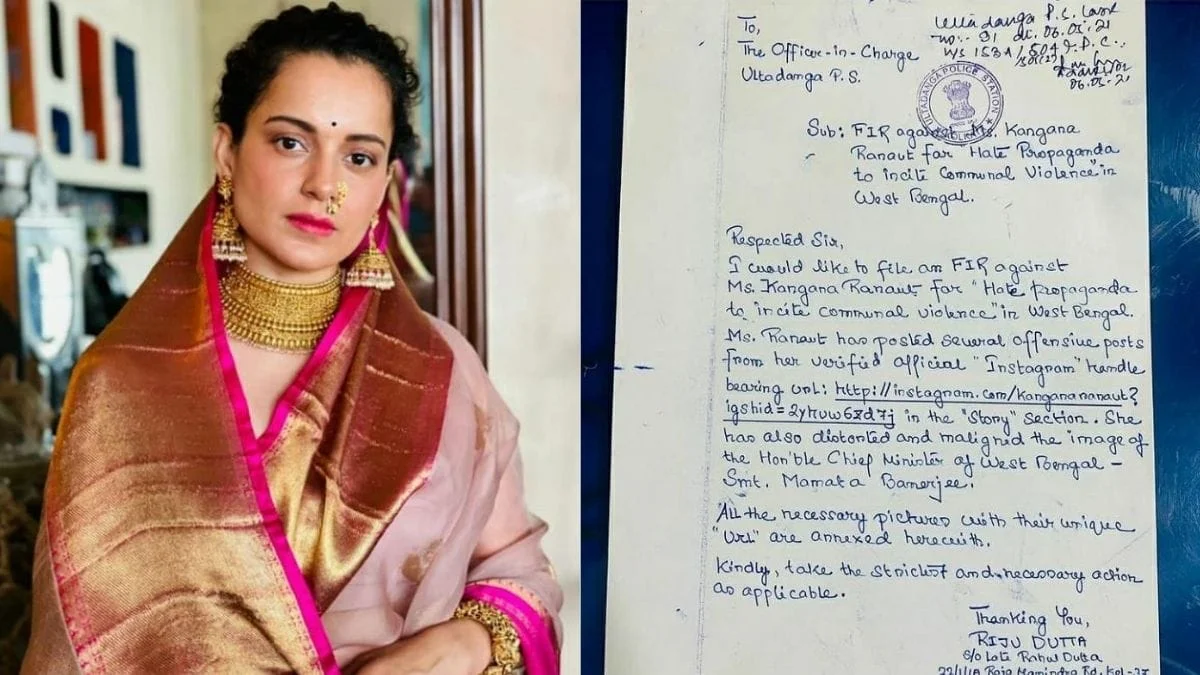 To,
The Officer-in-Charge
Ultadanga P.S.
Ultadanga P.S. Case
no:- 91 dt. 06.05.21
u/s 153A/504 I.P.C.
06.05.21
ULTADANGA POLICE STATION
Sub: FIR against Ms. Kangana
Ranaut for "Hate Propaganda
to incite Communal Violence" in
West Bengal.
Respected Sir,
I would like to file an FIR against
Ms. Kangana Ranaut for "Hate propaganda
to incite communal violence" in West Bengal.
Ms. Ranaut has posted several offensive posts
from her verified official "Instagram" handle
bearing URL: http://instagram.com/kanganaranaut?
igshid=2yhuw6zd7j in the "Story" section. She
has also distorted and maligned the image of
the Hon'ble Chief Minister of West Bengal –
Smt. Mamata Banerjee.
All the necessary pictures with their unique
"URL" are annexed herewith.
Kindly, take the strictest and necessary action
as applicable.
Thanking You,
RIJU DUTTA
S/o Late Rahul Dutta
22/1/1A Raja Manindra Rd. Kol-37